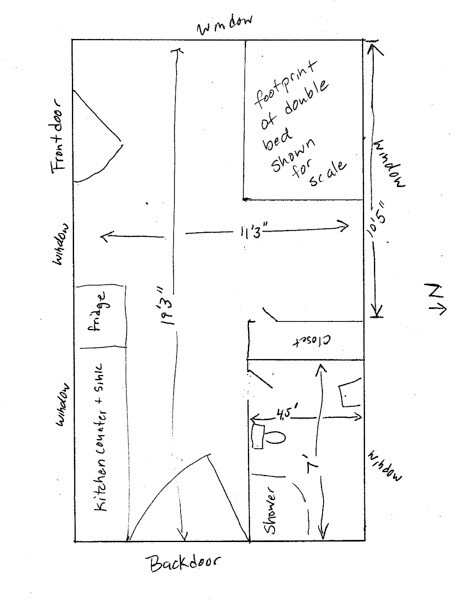 window
Front door
window
window
footprint
of double
bed
shown
for
scale
window
10'5"
11'3"
19'3"
N
fridge
Kitchen counter + sink
Closet
4.5'
7'
window
Shower
Backdoor